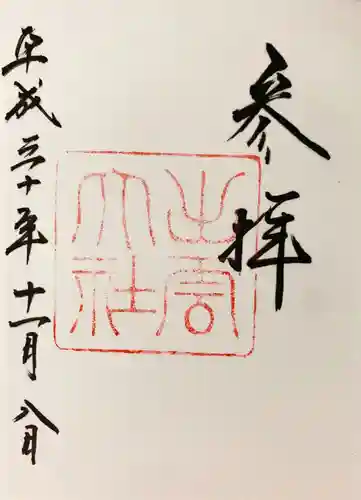 参拝
出雲
大社
平成三十年十一月八日